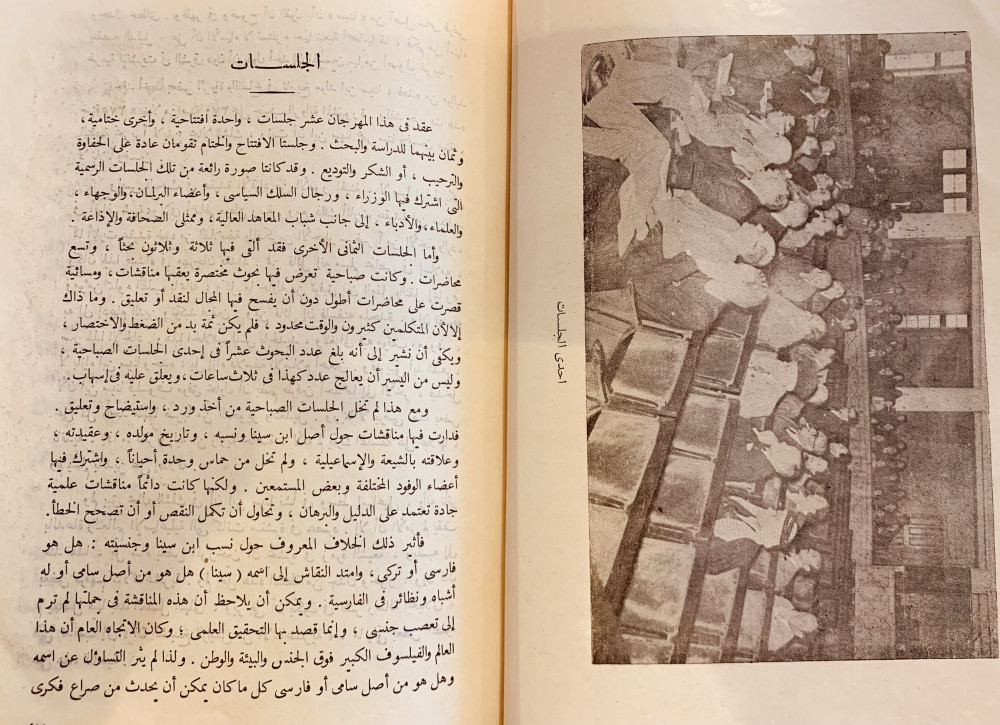 الجلسات
عقد فى هذا المهرجان عشر جلسات ، واحدة افتتاحية ، وأخرى ختامية ،
وثمان بينهما للدراسة والبحث . وجلستا الافتتاح والختام تقومان عادة على الحفاوة
والترحيب ، أو الشكر والتوديع . وقد كانتا صورة رائعة من تلك الجلسات الرسمية
التى اشترك فيها الوزراء ، ورجال السلك السياسى ، وأعضاء البرلمان، والوجهاء ،
والعلماء، والأدباء ، إلى جانب شباب المعاهد العالية، وممثلى الصحافة والإذاعة .
وأما الجلسات الثمانى الأخرى فقد ألقى فيها ثلاثة وثلاثون بحثاً ، وتسع
محاضرات . وكانت صباحية تعرض فيها بحوث مختصرة يعقبها مناقشات، ومسائية
قصرت على محاضرات أطول دون أن يفسح فيها المجال لنقد أو تعليق . وما ذاك
إلا لأن المتكلمين كثيرون والوقت محدود ، فلم يكن ثمة بد من الضغط والاختصار ،
ويكفى أن نشير إلى أنه بلغ عدد البحوث عشراً فى إحدى الجلسات الصباحية ،
وليس من اليسير أن يعالج عدد كهذا فى ثلاث ساعات، ويعلق عليه فى إسهاب.
ومع هذا لم تخل الجلسات الصباحية من أخذ ورد ، واستيضاح وتعليق .
فدارت فيها مناقشات حول أصل ابن سينا ونسبه ، وتاريخ مولده ، وعقيدته ،
وعلاقته بالشيعة والإسماعيلية ، ولم تخل من حماس وحدة أحياناً ، واشترك فيها
أعضاء الوفود المختلفة وبعض المستمعين . ولكنها كانت دائماً مناقشات علمية
جادة تعتمد على الدليل والبرهان ، وتحاول أن تكمل النقص أو أن تصحح الخطأ.
فأثير ذلك الخلاف المعروف حول نسب ابن سينا وجنسيته : هل هو
فارسى أو تركى، وامتد النقاش إلى اسمه ( سينا ) هل هو من أصل سامى أو له
أشباه ونظائر فى الفارسية . ويمكن أن يلاحظ أن هذه المناقشة فى جملتها لم ترم
إلى تعصب جنسى ، وإنما قصد بها التحقيق العلمى ؛ وكان الاتجاه العام أن هذا
العالم والفيلسوف الكبير فوق الجنس والبيئة والوطن . ولذا لم يثر التساؤل عن اسمه
وهل هو من أصل سامى أو فارسى كل ما كان يمكن أن يحدث من صراع فكرى
احدى الجلسات